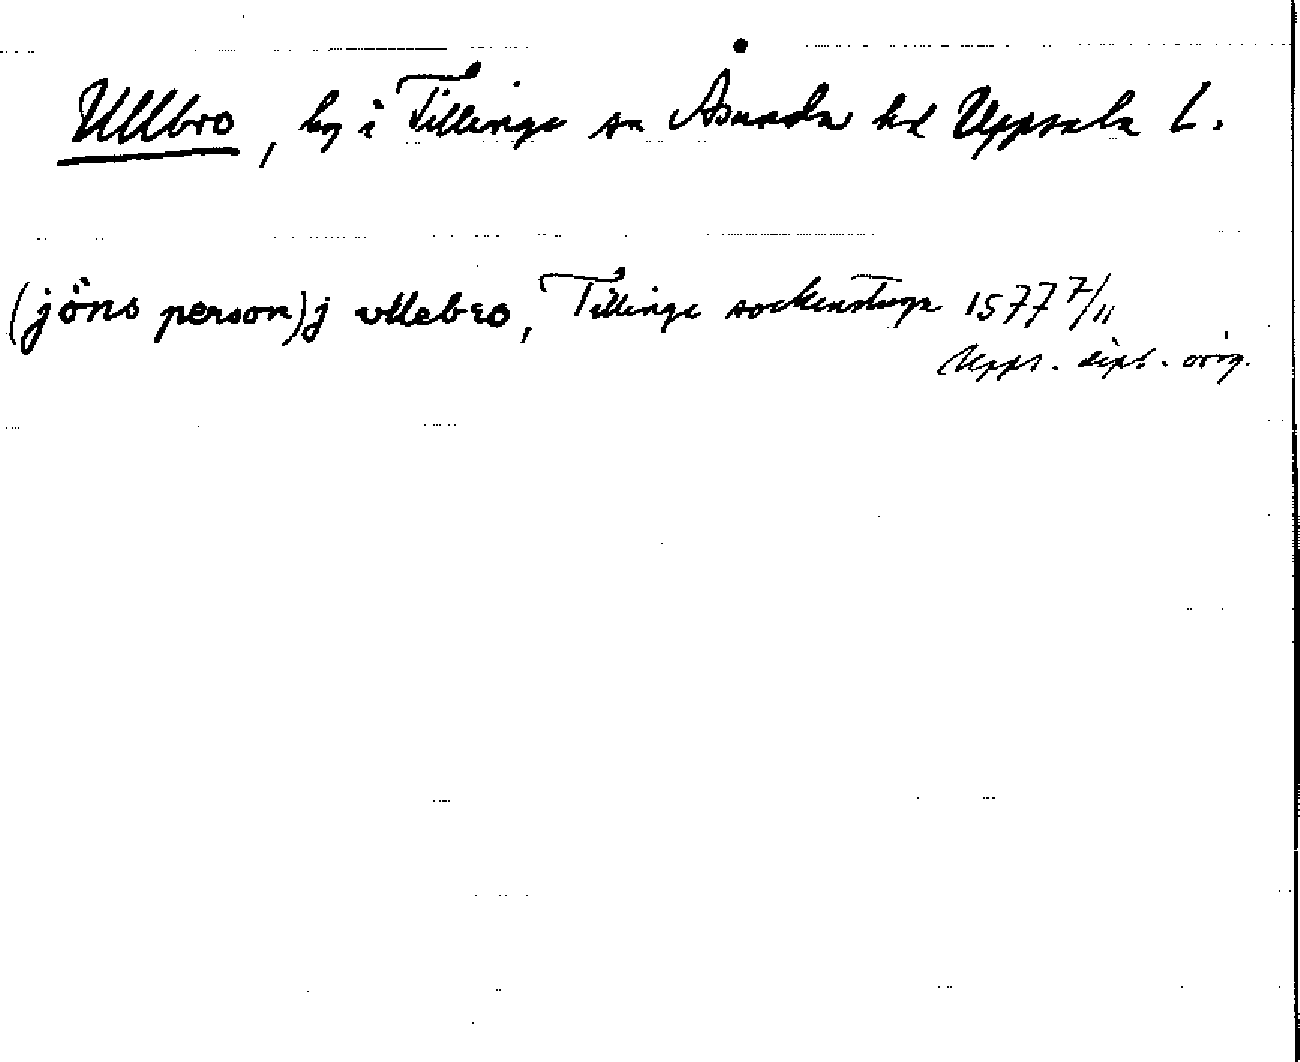 Ullbro, by i Tillinge sn Åsunda hd Uppsala l.
(jöns person) j vllebro, Tillinge sockenstuga 1577 7/11
Upps. dipl. orig.